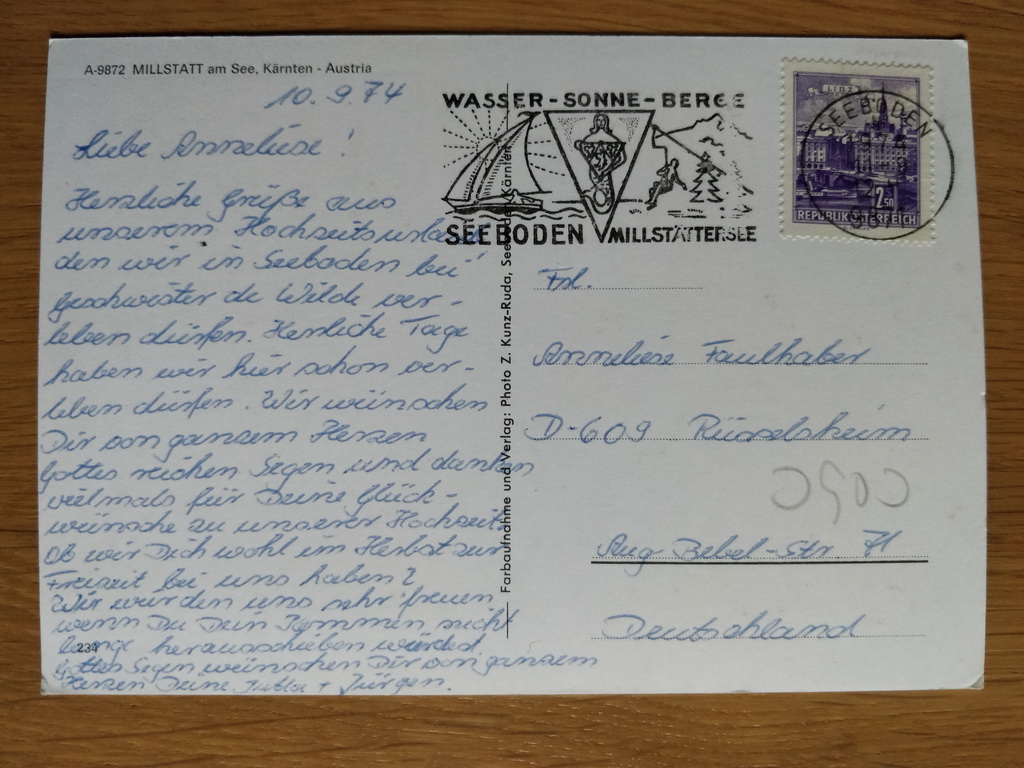 A-9872 MILLSTATT am See, Kärnten - Austria
10.9.74
Liebe Anneliese!
Herzliche Grüße aus
unserem Hochzeitsurlaub
den wir in Seeboden bei
Geschwister de Wilde ver-
leben dürfen. Herrliche Tage
haben wir hier schon ver-
leben dürfen. Wir wünschen
Dir von ganzem Herzen
Gottes reichen Segen und danken
vielmals für Deine Glück-
wünsche zu unserer Hochzeit.
Ob wir Dich wohl im Herbst zur
Freizeit bei uns haben?
Wir würden uns sehr freuen
wenn Du Dein Kommen nicht
lange herausschieben würdest.
Gottes Segen wünschen Dir von ganzem
Herzen Deine Jutta + Jürgen.
234
Farbaufnahme und Verlag: Photo Z. Kunz-Ruda, Seeboden, Kärnten
WASSER-SONNE-BERGE
SEEBODEN MILLSTÄTTERSEE
LINZ
2.50
REPUBLIK ÖSTERREICH
SEEBODEN
Frl.
Anneliese Faulhaber
D-609 Rüsselsheim
Aug. Bebel-Str. 71
Deutschland